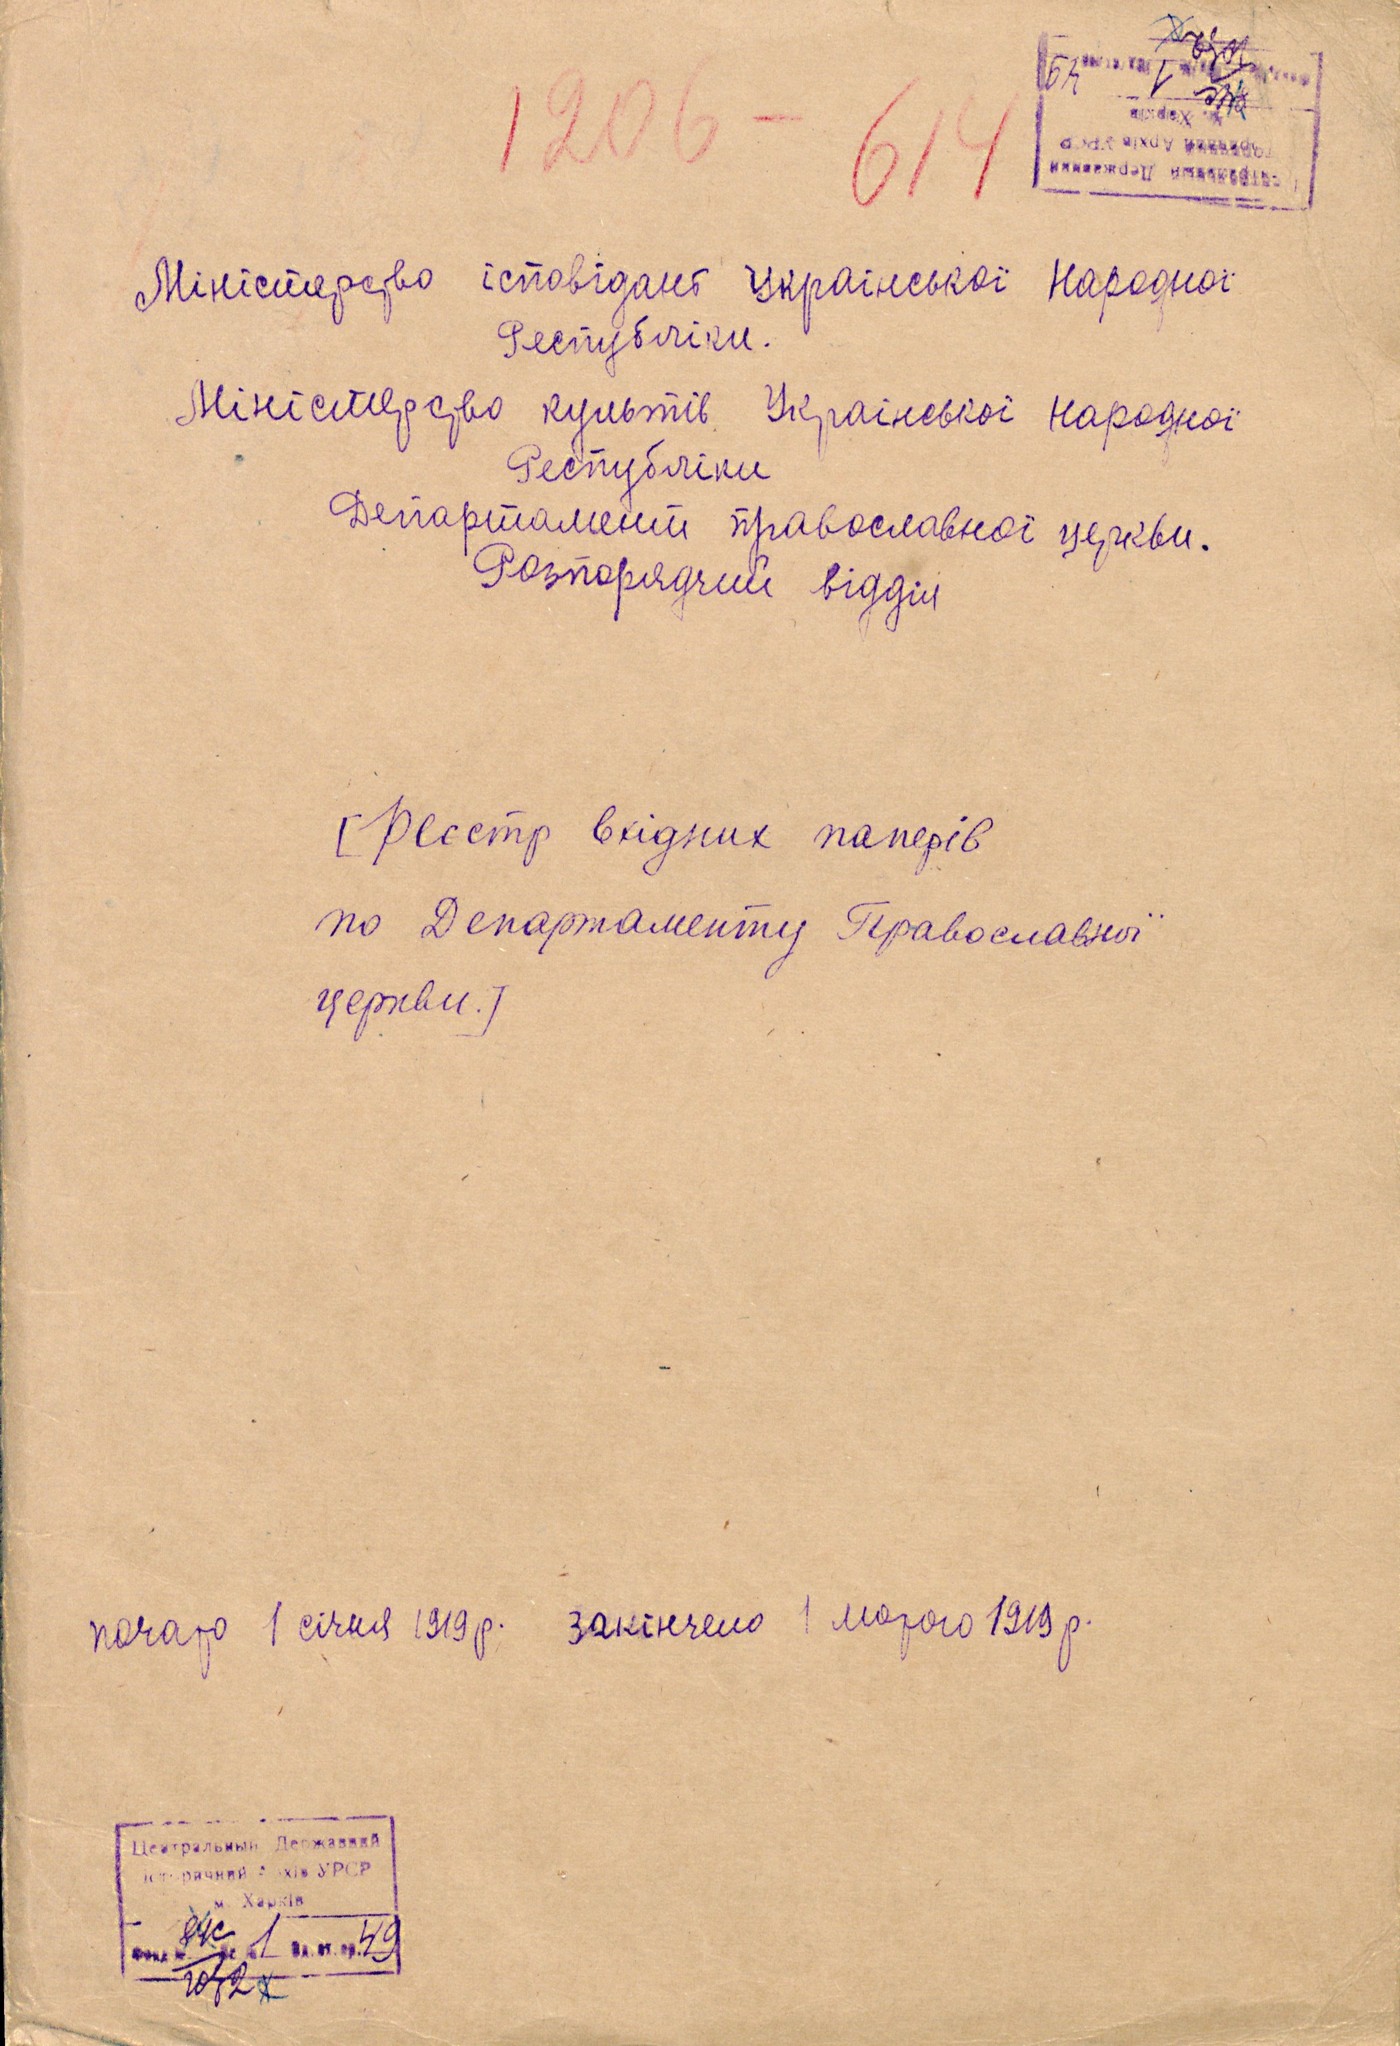 1206 - 614
Міністерство ісповідань Української Народної
Республіки.
Міністерство культів Української Народної
Республіки
Департамент православної церкви.
Розпорядчий відділ
[Реєстр вхідних паперів
по Департаменту Православної
церкви.]
почато 1 січня 1919 р. закінчено 1 лютого 1919 р.
Центральный Державний
історичний Архів УРСР
м. Харків
1 Од. зб. 49